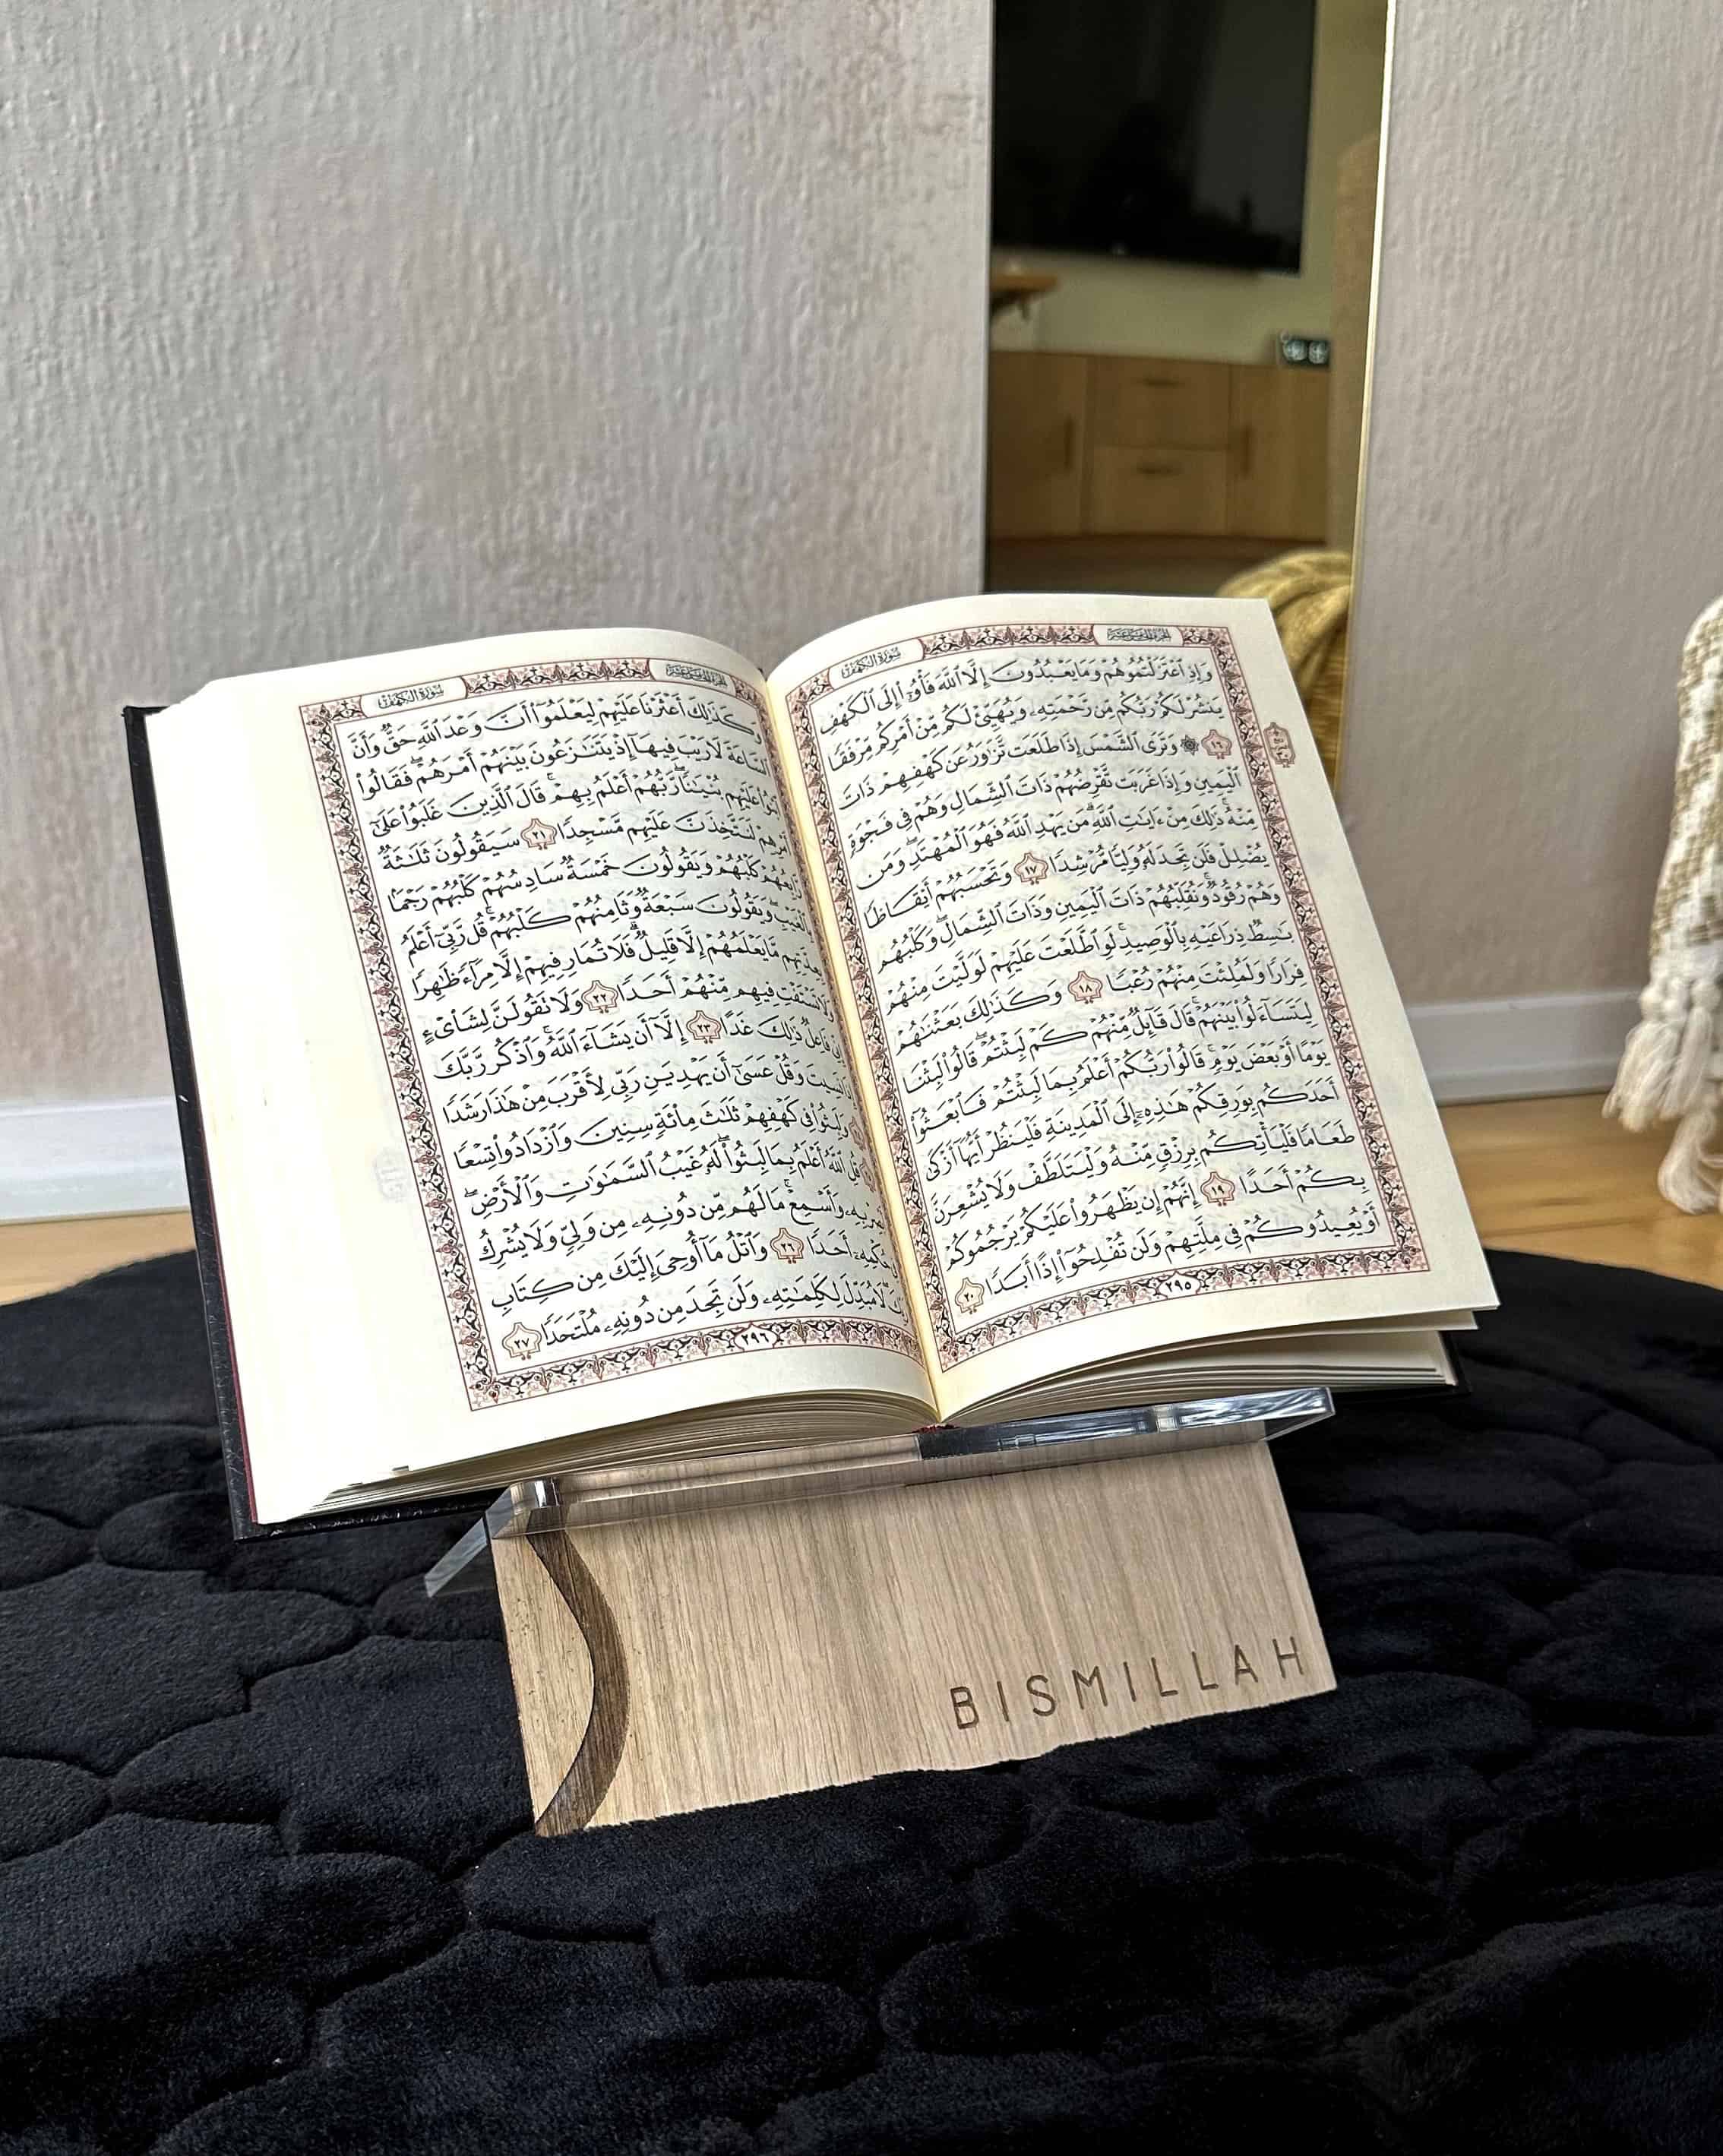 الجزء الخامس عشر
سورة الكهف
وَإِذِ ٱعْتَزَلْتُمُوهُمْ وَمَا يَعْبُدُونَ إِلَّا ٱللَّهَ فَأْوُۥٓا۟ إِلَى ٱلْكَهْفِ
يَنشُرْ لَكُمْ رَبُّكُم مِّن رَّحْمَتِهِۦ وَيُهَيِّئْ لَكُم مِّنْ أَمْرِكُم مِّرْفَقًا
١٦ ۞ وَتَرَى ٱلشَّمْسَ إِذَا طَلَعَت تَّزَٰوَرُ عَن كَهْفِهِمْ ذَاتَ
ٱلْيَمِينِ وَإِذَا غَرَبَت تَّقْرِضُهُمْ ذَاتَ ٱلشِّمَالِ وَهُمْ فِى فَجْوَةٍ
مِّنْهُ ۚ ذَٰلِكَ مِنْ ءَايَٰتِ ٱللَّهِ ۗ مَن يَهْدِ ٱللَّهُ فَهُوَ ٱلْمُهْتَدِ ۖ وَمَن
يُضْلِلْ فَلَن تَجِدَ لَهُۥ وَلِيًّا مُّرْشِدًا ١٧ وَتَحْسَبُهُمْ أَيْقَاظًا
وَهُمْ رُقُودٌ ۚ وَنُقَلِّبُهُمْ ذَاتَ ٱلْيَمِينِ وَذَاتَ ٱلشِّمَالِ ۖ وَكَلْبُهُم
بَٰسِطٌ ذِرَاعَيْهِ بِٱلْوَصِيدِ ۚ لَوِ ٱطَّلَعْتَ عَلَيْهِمْ لَوَلَّيْتَ مِنْهُمْ
فِرَارًا وَلَمُلِئْتَ مِنْهُمْ رُعْبًا ١٨ وَكَذَٰلِكَ بَعَثْنَٰهُمْ
لِيَتَسَآءَلُوا۟ بَيْنَهُمْ ۚ قَالَ قَآئِلٌ مِّنْهُمْ كَمْ لَبِثْتُمْ ۖ قَالُوا۟ لَبِثْنَا
يَوْمًا أَوْ بَعْضَ يَوْمٍ ۚ قَالُوا۟ رَبُّكُمْ أَعْلَمُ بِمَا لَبِثْتُمْ فَٱبْعَثُوٓا۟
أَحَدَكُم بِوَرِقِكُمْ هَٰذِهِۦٓ إِلَى ٱلْمَدِينَةِ فَلْيَنظُرْ أَيُّهَآ أَزْكَىٰ
طَعَامًا فَلْيَأْتِكُم بِرِزْقٍ مِّنْهُ وَلْيَتَلَطَّفْ وَلَا يُشْعِرَنَّ
بِكُمْ أَحَدًا ١٩ إِنَّهُمْ إِن يَظْهَرُوا۟ عَلَيْكُمْ يَرْجُمُوكُمْ
أَوْ يُعِيدُوكُمْ فِى مِلَّتِهِمْ وَلَن تُفْلِحُوٓا۟ إِذًا أَبَدًا ٢٠
٢٩٥
الجزء الخامس عشر
سورة الكهف
وَكَذَٰلِكَ أَعْثَرْنَا عَلَيْهِمْ لِيَعْلَمُوٓا۟ أَنَّ وَعْدَ ٱللَّهِ حَقٌّ وَأَنَّ
ٱلسَّاعَةَ لَا رَيْبَ فِيهَآ إِذْ يَتَنَٰزَعُونَ بَيْنَهُمْ أَمْرَهُمْ ۖ فَقَالُوا۟
عَلَيْهِم بُنْيَٰنًا ۖ رَّبُّهُمْ أَعْلَمُ بِهِمْ ۚ قَالَ ٱلَّذِينَ غَلَبُوا۟ عَلَىٰٓ
أَمْرِهِمْ لَنَتَّخِذَنَّ عَلَيْهِم مَّسْجِدًا ٢١ سَيَقُولُونَ ثَلَٰثَةٌ
رَّابِعُهُمْ كَلْبُهُمْ وَيَقُولُونَ خَمْسَةٌ سَادِسُهُمْ كَلْبُهُمْ رَجْمًۢا
بِٱلْغَيْبِ ۖ وَيَقُولُونَ سَبْعَةٌ وَثَامِنُهُمْ كَلْبُهُمْ ۚ قُل رَّبِّىٓ أَعْلَمُ
بِعِدَّتِهِم مَّا يَعْلَمُهُمْ إِلَّا قَلِيلٌ ۗ فَلَا تُمَارِ فِيهِمْ إِلَّا مِرَآءً ظَٰهِرًا
وَلَا تَسْتَفْتِ فِيهِم مِّنْهُمْ أَحَدًا ٢٢ وَلَا تَقُولَنَّ لِشَا۟ىْءٍ
إِنِّى فَاعِلٌ ذَٰلِكَ غَدًا ٢٣ إِلَّآ أَن يَشَآءَ ٱللَّهُ ۚ وَٱذْكُر رَّبَّكَ
نَسِيتَ وَقُلْ عَسَىٰٓ أَن يَهْدِيَنِ رَبِّى لِأَقْرَبَ مِنْ هَٰذَا رَشَدًا
وَلَبِثُوا۟ فِى كَهْفِهِمْ ثَلَٰثَ مِا۟ئَةٍ سِنِينَ وَٱزْدَادُوا۟ تِسْعًا
قُلِ ٱللَّهُ أَعْلَمُ بِمَا لَبِثُوا۟ ۖ لَهُۥ غَيْبُ ٱلسَّمَٰوَٰتِ وَٱلْأَرْضِ ۖ
بِهِۦ وَأَسْمِعْ ۚ مَا لَهُم مِّن دُونِهِۦ مِن وَلِىٍّ وَلَا يُشْرِكُ
حُكْمِهِۦٓ أَحَدًا ٢٦ وَٱتْلُ مَآ أُوحِىَ إِلَيْكَ مِن كِتَابِ
لَا مُبَدِّلَ لِكَلِمَٰتِهِۦ وَلَن تَجِدَ مِن دُونِهِۦ مُلْتَحَدًا ٢٧
٢٩٦
BISMILLAH